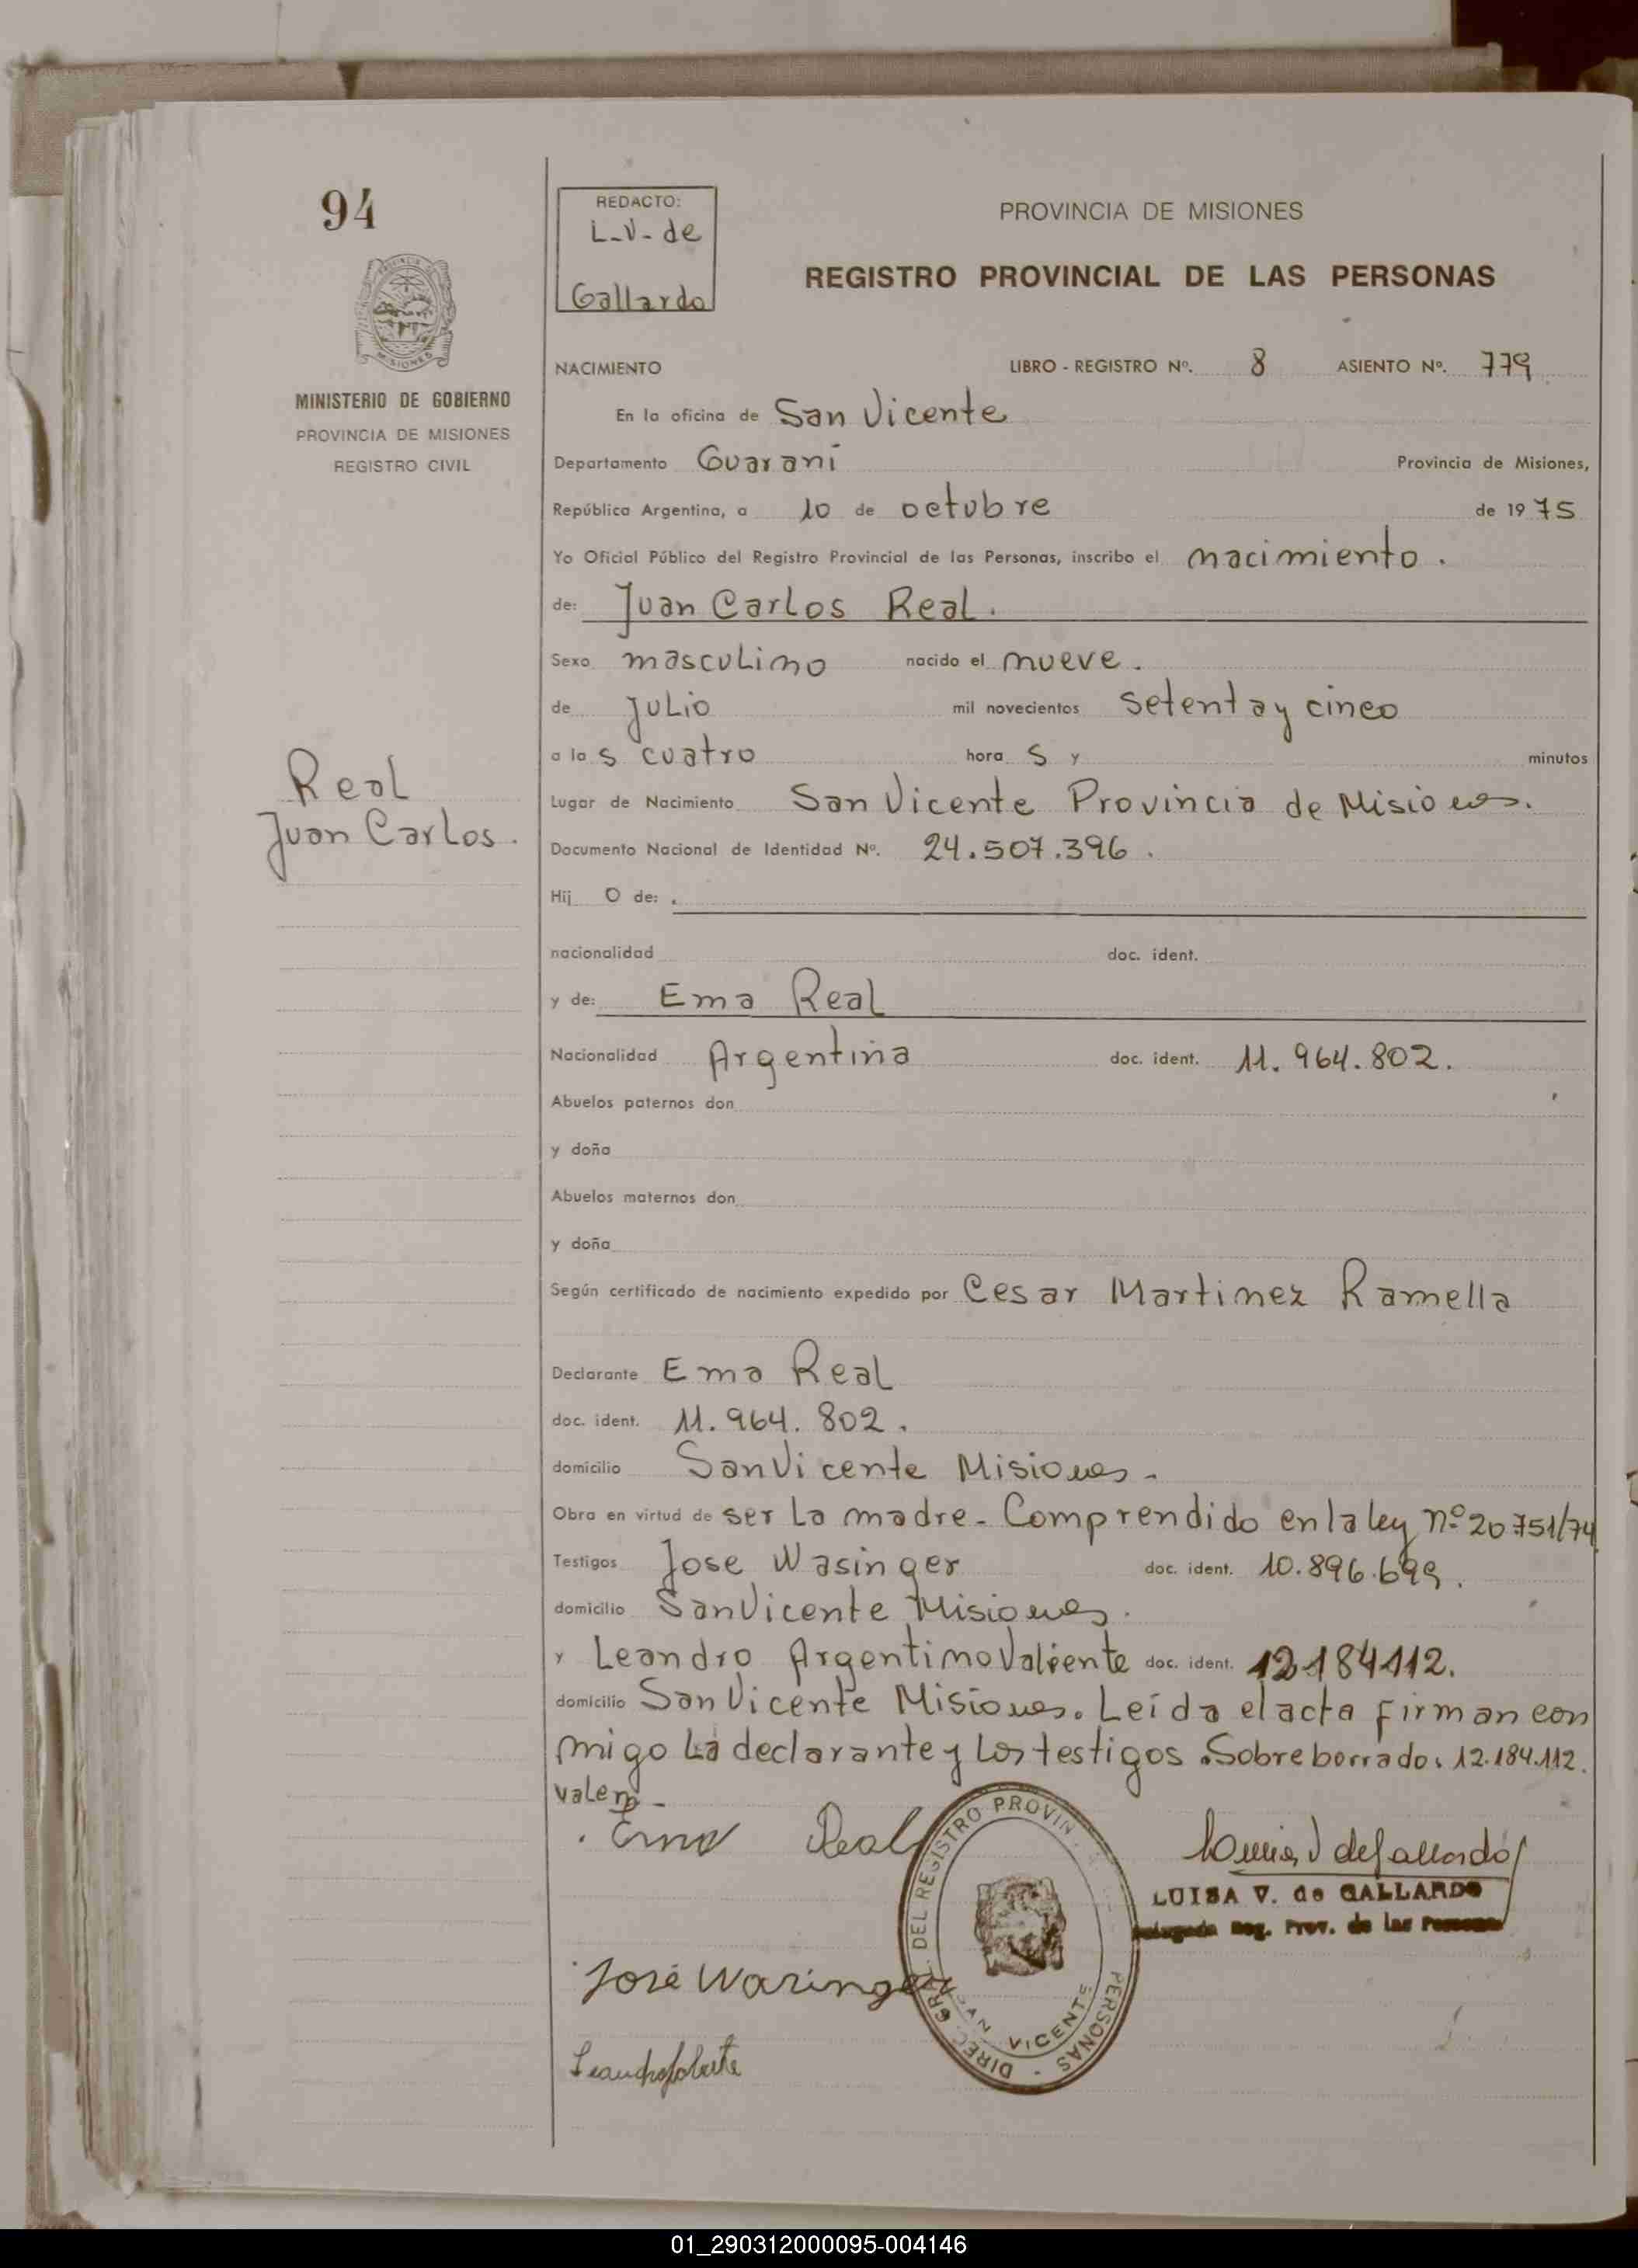 94
REDACTO:
L-V- de
Gallardo
PROVINCIA DE MISIONES
REGISTRO PROVINCIAL DE LAS PERSONAS
MISIONES
MINISTERIO DE GOBIERNO
PROVINCIA DE MISIONES
REGISTRO CIVIL
NACIMIENTO LIBRO - REGISTRO Nº. 8 ASIENTO Nº. 779
En la oficina de San Vicente
Departamento Guarani Provincia de Misiones,
República Argentina, a 10 de octubre de 1975
Yo Oficial Público del Registro Provincial de las Personas, inscribo el nacimiento.
de: Juan Carlos Real.
Sexo masculino nacido el nueve.
de julio mil novecientos setenta y cinco
a las cuatro horas y minutos
Real
Juan Carlos.
Lugar de Nacimiento San Vicente Provincia de Misiones.
Documento Nacional de Identidad Nº. 24.507.396.
Hijo de:
nacionalidad doc. ident.
y de: Ema Real
Nacionalidad Argentina doc. ident. 11.964.802.
Abuelos paternos don
y doña
Abuelos maternos don
y doña
Según certificado de nacimiento expedido por Cesar Martinez Ramella
Declarante Ema Real
doc. ident. 11.964.802.
domicilio San Vicente Misiones-
Obra en virtud de ser la madre- Comprendido en la ley nº 20751/74
Testigos Jose Wasinger doc. ident. 10.896.699.
domicilio San Vicente Misiones.
y Leandro Argentino Valiente doc. ident. 12184112.
domicilio San Vicente Misiones. Leída el acta firman con
migo la declarante y los testigos. Sobreborrado: 12.184.112.
valen-
Ema Real
DIREC. GRAL. DEL REGISTRO PROVIN. PERSONAS
SAN VICENTE
Luisa V de Gallardo
LUISA V. de GALLARDO
Delegada Reg. Prov. de las Personas
José Wasinger
01_290312000095-004146